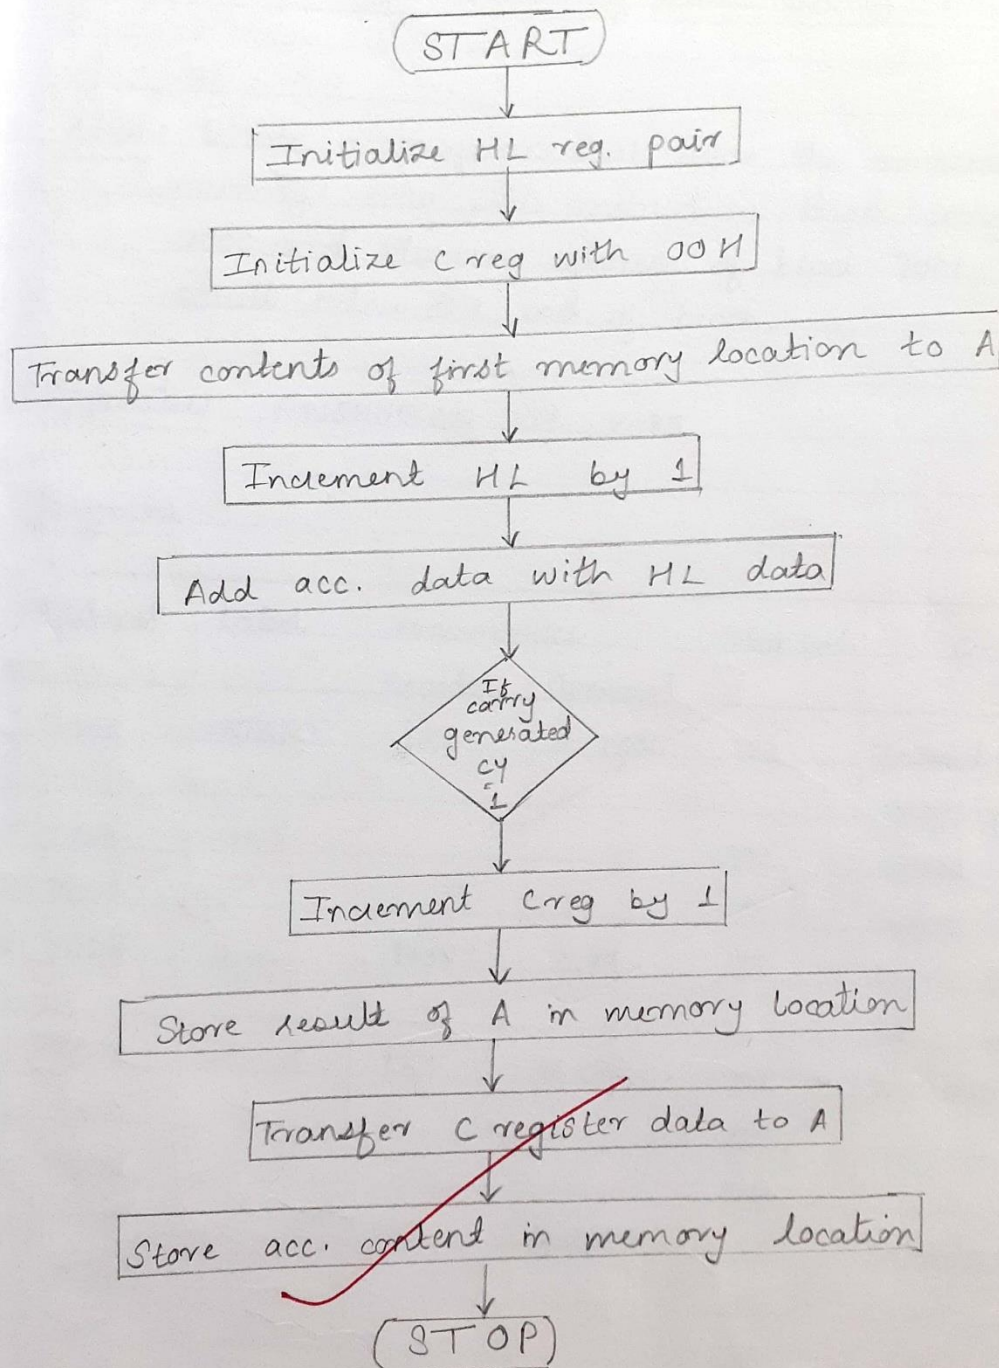 START
Initialize HL reg. pair
Initialize C reg with 00H
Transfer contents of first memory location to A
Increment HL by 1
Add acc. data with HL data
If
carry
generated
CY
=
1
Increment C reg by 1
Store result of A in memory location
Transfer C register data to A
Store acc. content in memory location
STOP